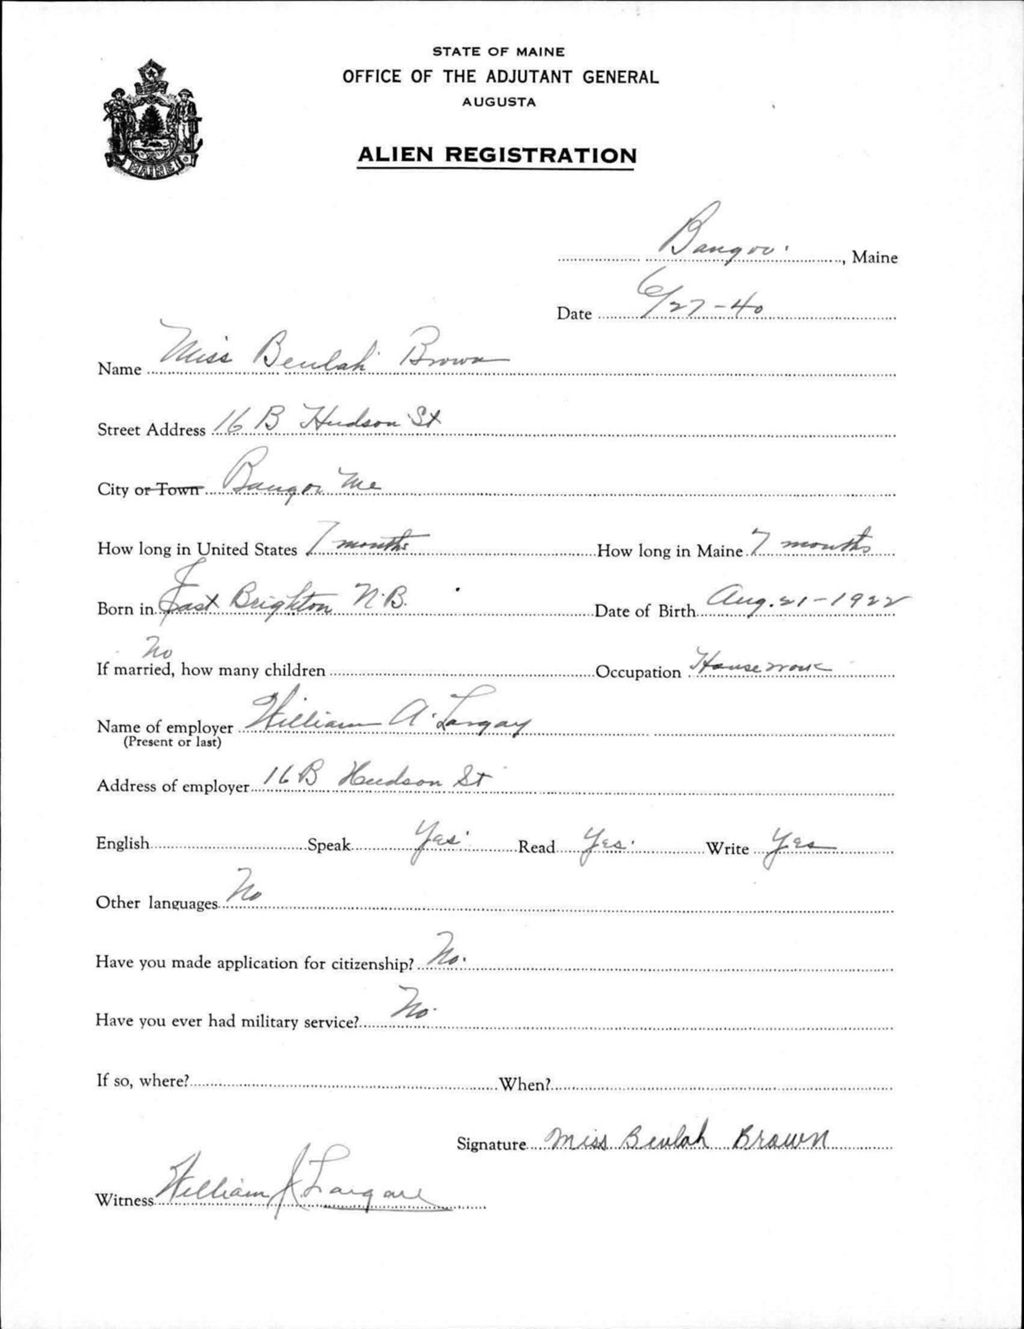 STATE OF MAINE
OFFICE OF THE ADJUTANT GENERAL
AUGUSTA
MAINE
ALIEN REGISTRATION
Bangor, Maine
Date 6/27-40
Name Miss Beulah Brown
Street Address 16 B Hudson St
City or Town Bangor Me
How long in United States 7 months How long in Maine 7 months
Born in East Brighton N.B. Date of Birth Aug. 21-1922
No
If married, how many children Occupation Housework
Name of employer William A. Largay
(Present or last)
Address of employer 16 B Hudson St
English Speak Yes. Read Yes. Write Yes
Other languages No
Have you made application for citizenship? No.
Have you ever had military service? No.
If so, where? When?
Signature Miss Beulah Brown
Witness William